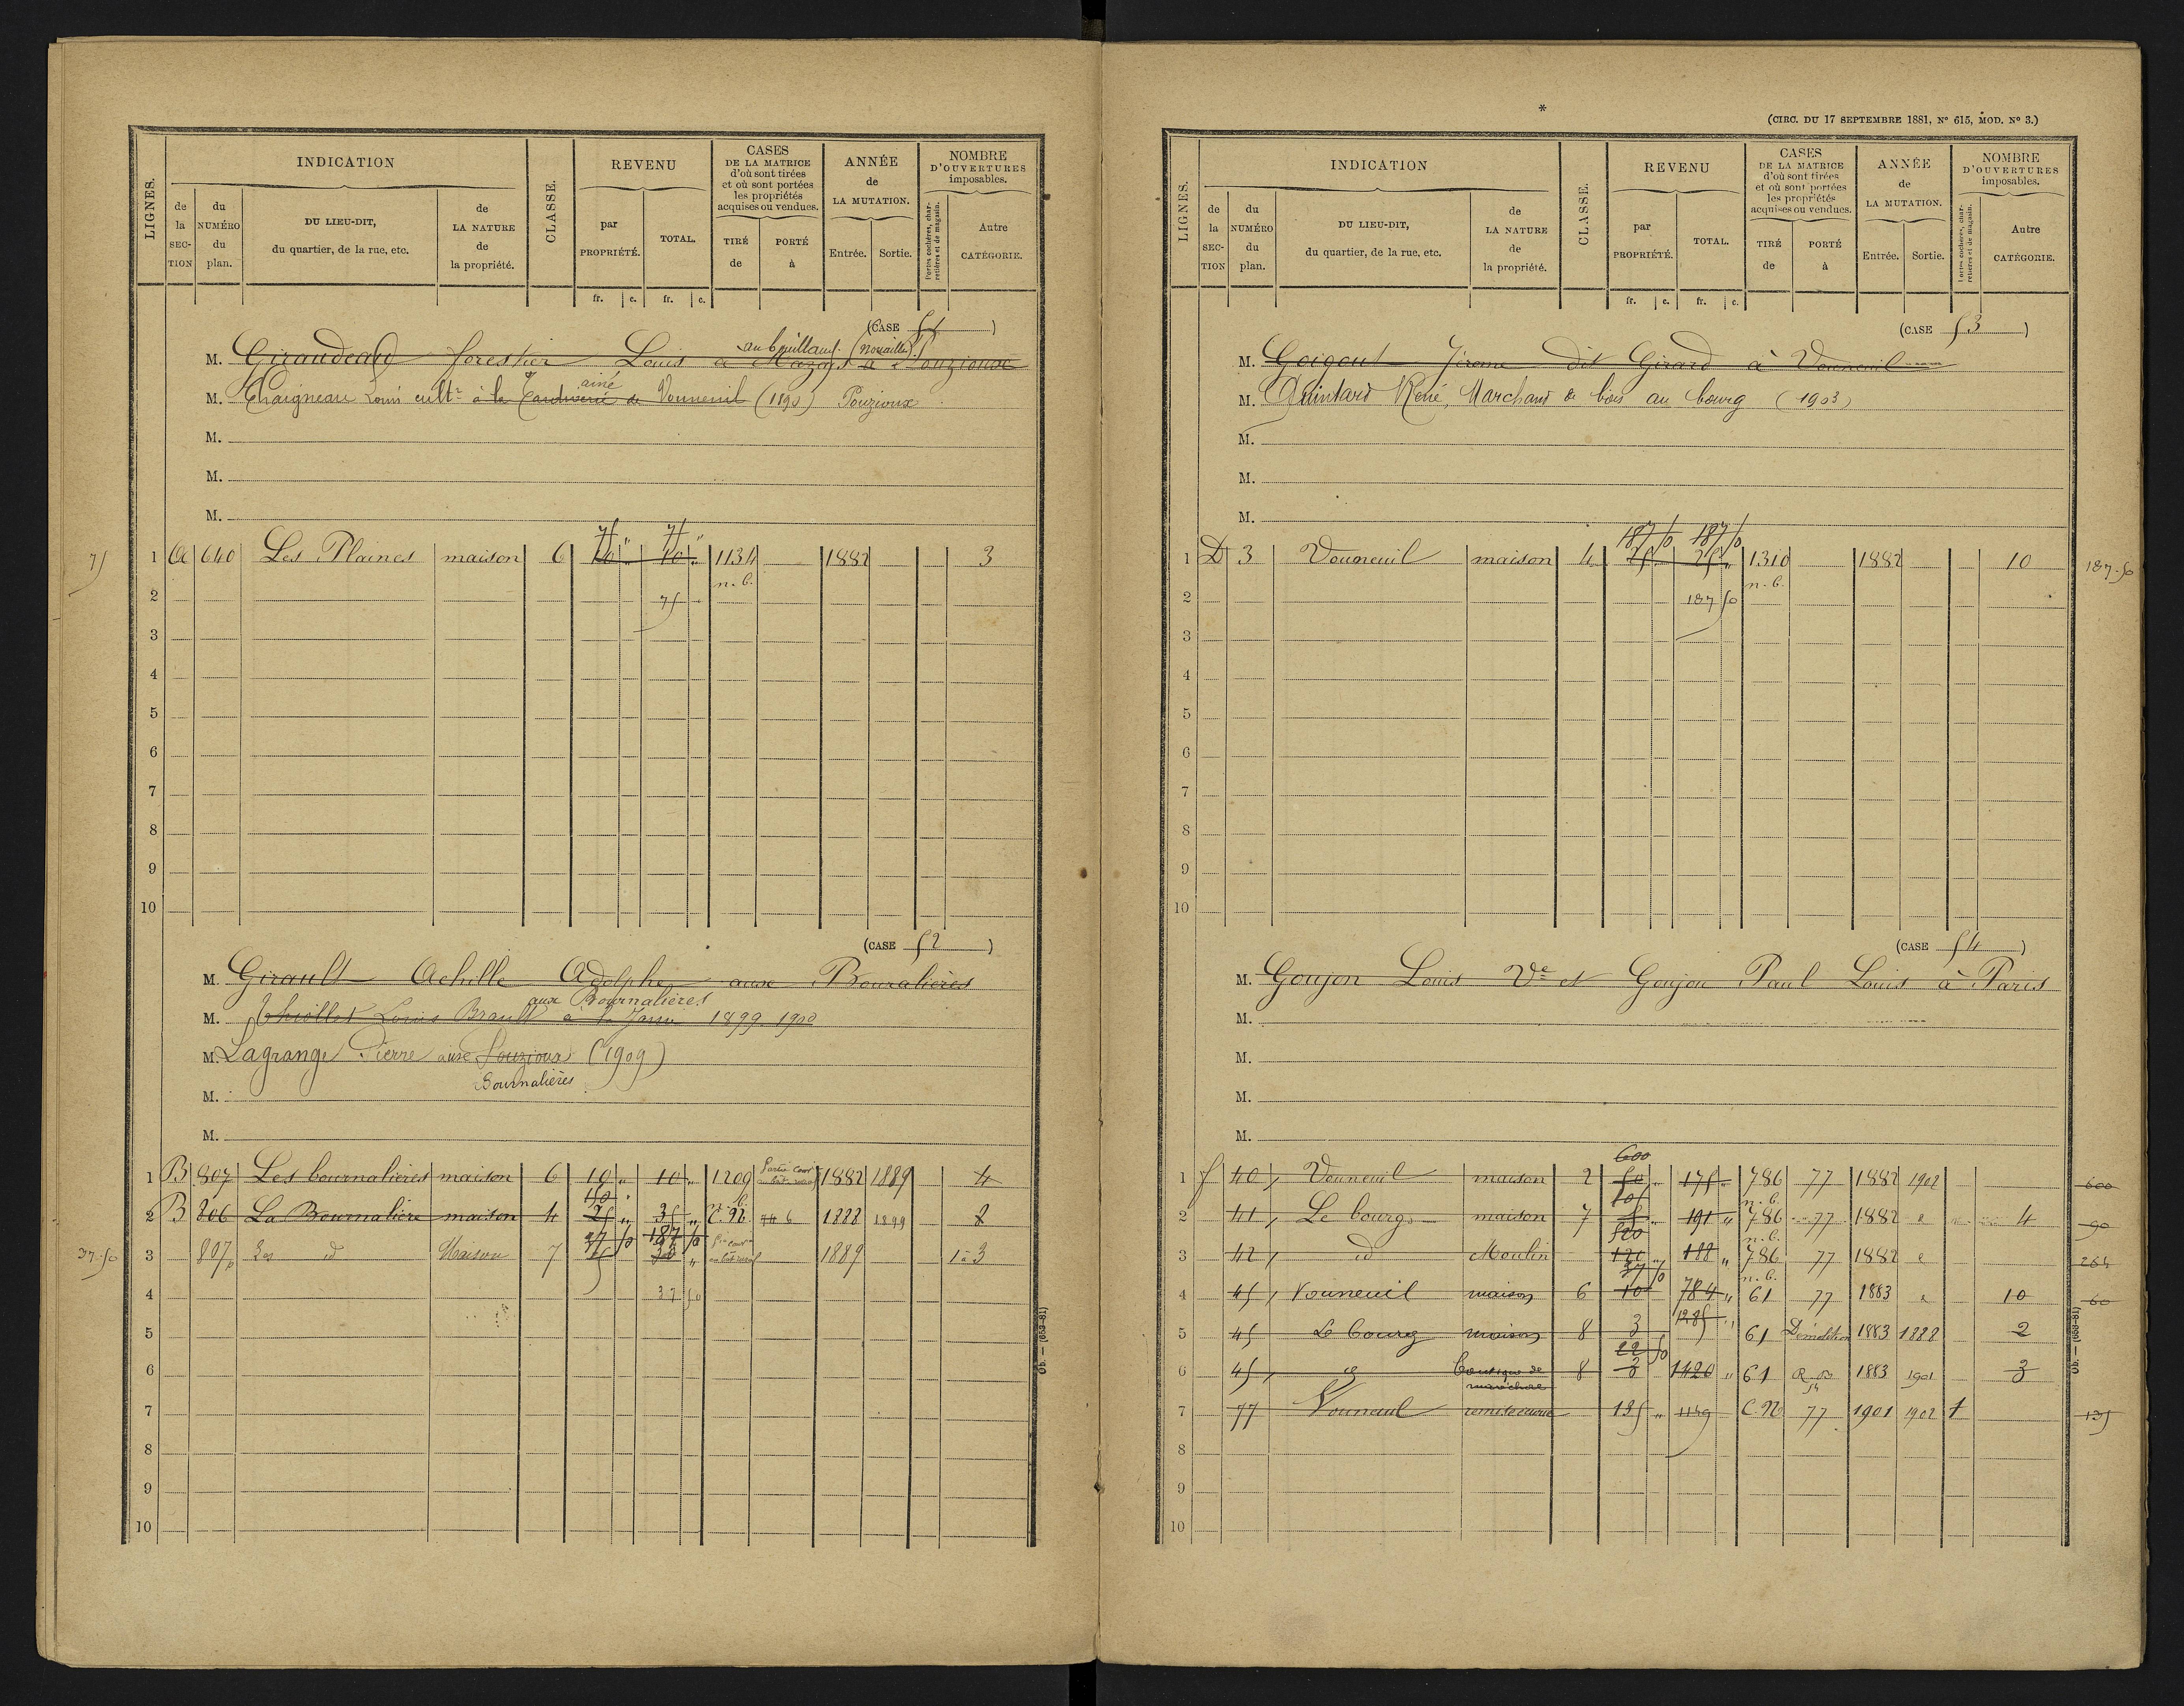 LIGNES.
INDICATION
de la SECTION
du NUMÉRO du plan.
DU LIEU-DIT, du quartier, de la rue, etc.
de LA NATURE de la propriété.
CLASSE.
REVENU
par PROPRIÉTÉ.
TOTAL.
fr. c. fr. c.
CASES DE LA MATRICE d'où sont tirées et où sont portées les propriétés acquises ou vendues.
TIRÉ de
PORTÉ à
ANNÉE de LA MUTATION.
Entrée. Sortie.
NOMBRE D'OUVERTURES imposables.
Portes cochères, charretières et de magasin.
Autre CATÉGORIE.
(CASE 51)
au bouillaud (Nouaillé)
M. Giraudeau forestier Louis à Mazay à Pouzioux
ainé
M. Chaigneau Louis cultr à la de Vouneuil (1890) Pouzioux
M.
M.
M.
75 " 75 "
75 1 A 640 Les Plaines maison 6 10 " 10 " 1134 1882 3
n.b.
2 75
3
4
5
6
7
8
9
10
(CASE 52)
M. Girault Achille Adolphe aux Bournalières
aux Bournalières
M. Thiollet Louis Brault à la Jarrie 1899 1900
M. Lagrange Pierre aux Pouzioux (1909)
Bournalières
M.
M.
1 B 807 Les bournalières maison 6 10 " 10 " 1209 Partie conv. en bât. rural 1882 1889 4
150 n.b.
2 B 806 La Bournalière maison 4 25 " 35 " C.N. 446 1888 1899 8
37 50 187 50
37.50 3 807p Les id Maison 7 1889 1 à 3
4 37 50
5
6
7
8
9
10
Ob. — (653-81)
*
(CIRC. DU 17 SEPTEMBRE 1881, N° 615, MOD. N° 3.)
LIGNES.
INDICATION
de la SECTION
du NUMÉRO du plan.
DU LIEU-DIT, du quartier, de la rue, etc.
de LA NATURE de la propriété.
CLASSE.
REVENU
par PROPRIÉTÉ.
TOTAL.
fr. c. fr. c.
CASES DE LA MATRICE d'où sont tirées et où sont portées les propriétés acquises ou vendues.
TIRÉ de
PORTÉ à
ANNÉE de LA MUTATION.
Entrée. Sortie.
NOMBRE D'OUVERTURES imposables.
Portes cochères, charretières et de magasin.
Autre CATÉGORIE.
(CASE 53)
M. Goigout Jérome dit Girard à Vouneuil
M. Quintard René, Marchand de bois au bourg (1903)
M.
M.
M.
187 50 187 50
1 D 3 Vouneuil maison 4 25 25 " 1310 1882 10 187.50
n.b.
2 187 50
3
4
5
6
7
8
9
10
(CASE 54)
M. Goujon Louis Ve et Goujon Paul Louis à Paris
M.
M.
M.
M.
600
1 f 40 Vouneuil maison 2 50 " 175 " 786 77 1882 1902 600
105 n.b.
2 41 Le bourg maison 7 191 " 786 77 1882 " 4 90
520 n.b.
3 42 id Moulin 120 " 188 " 786 77 1882 " 264
37 50 n.b.
4 45 Vouneuil maison 6 10 784 " 61 77 1883 " 10 60
5 45 Le bourg maison 8 3 1285 " 61 Démolition 1883 1888 2
22 50
6 45 id boutique de maréchal 8 3 1420 " 61 54 1883 1901 3
7 77 Vouneuil remise écurie 135 " 1149 C.N 77 1901 1902 1 135
8
9
10
Ob. — (653-81)